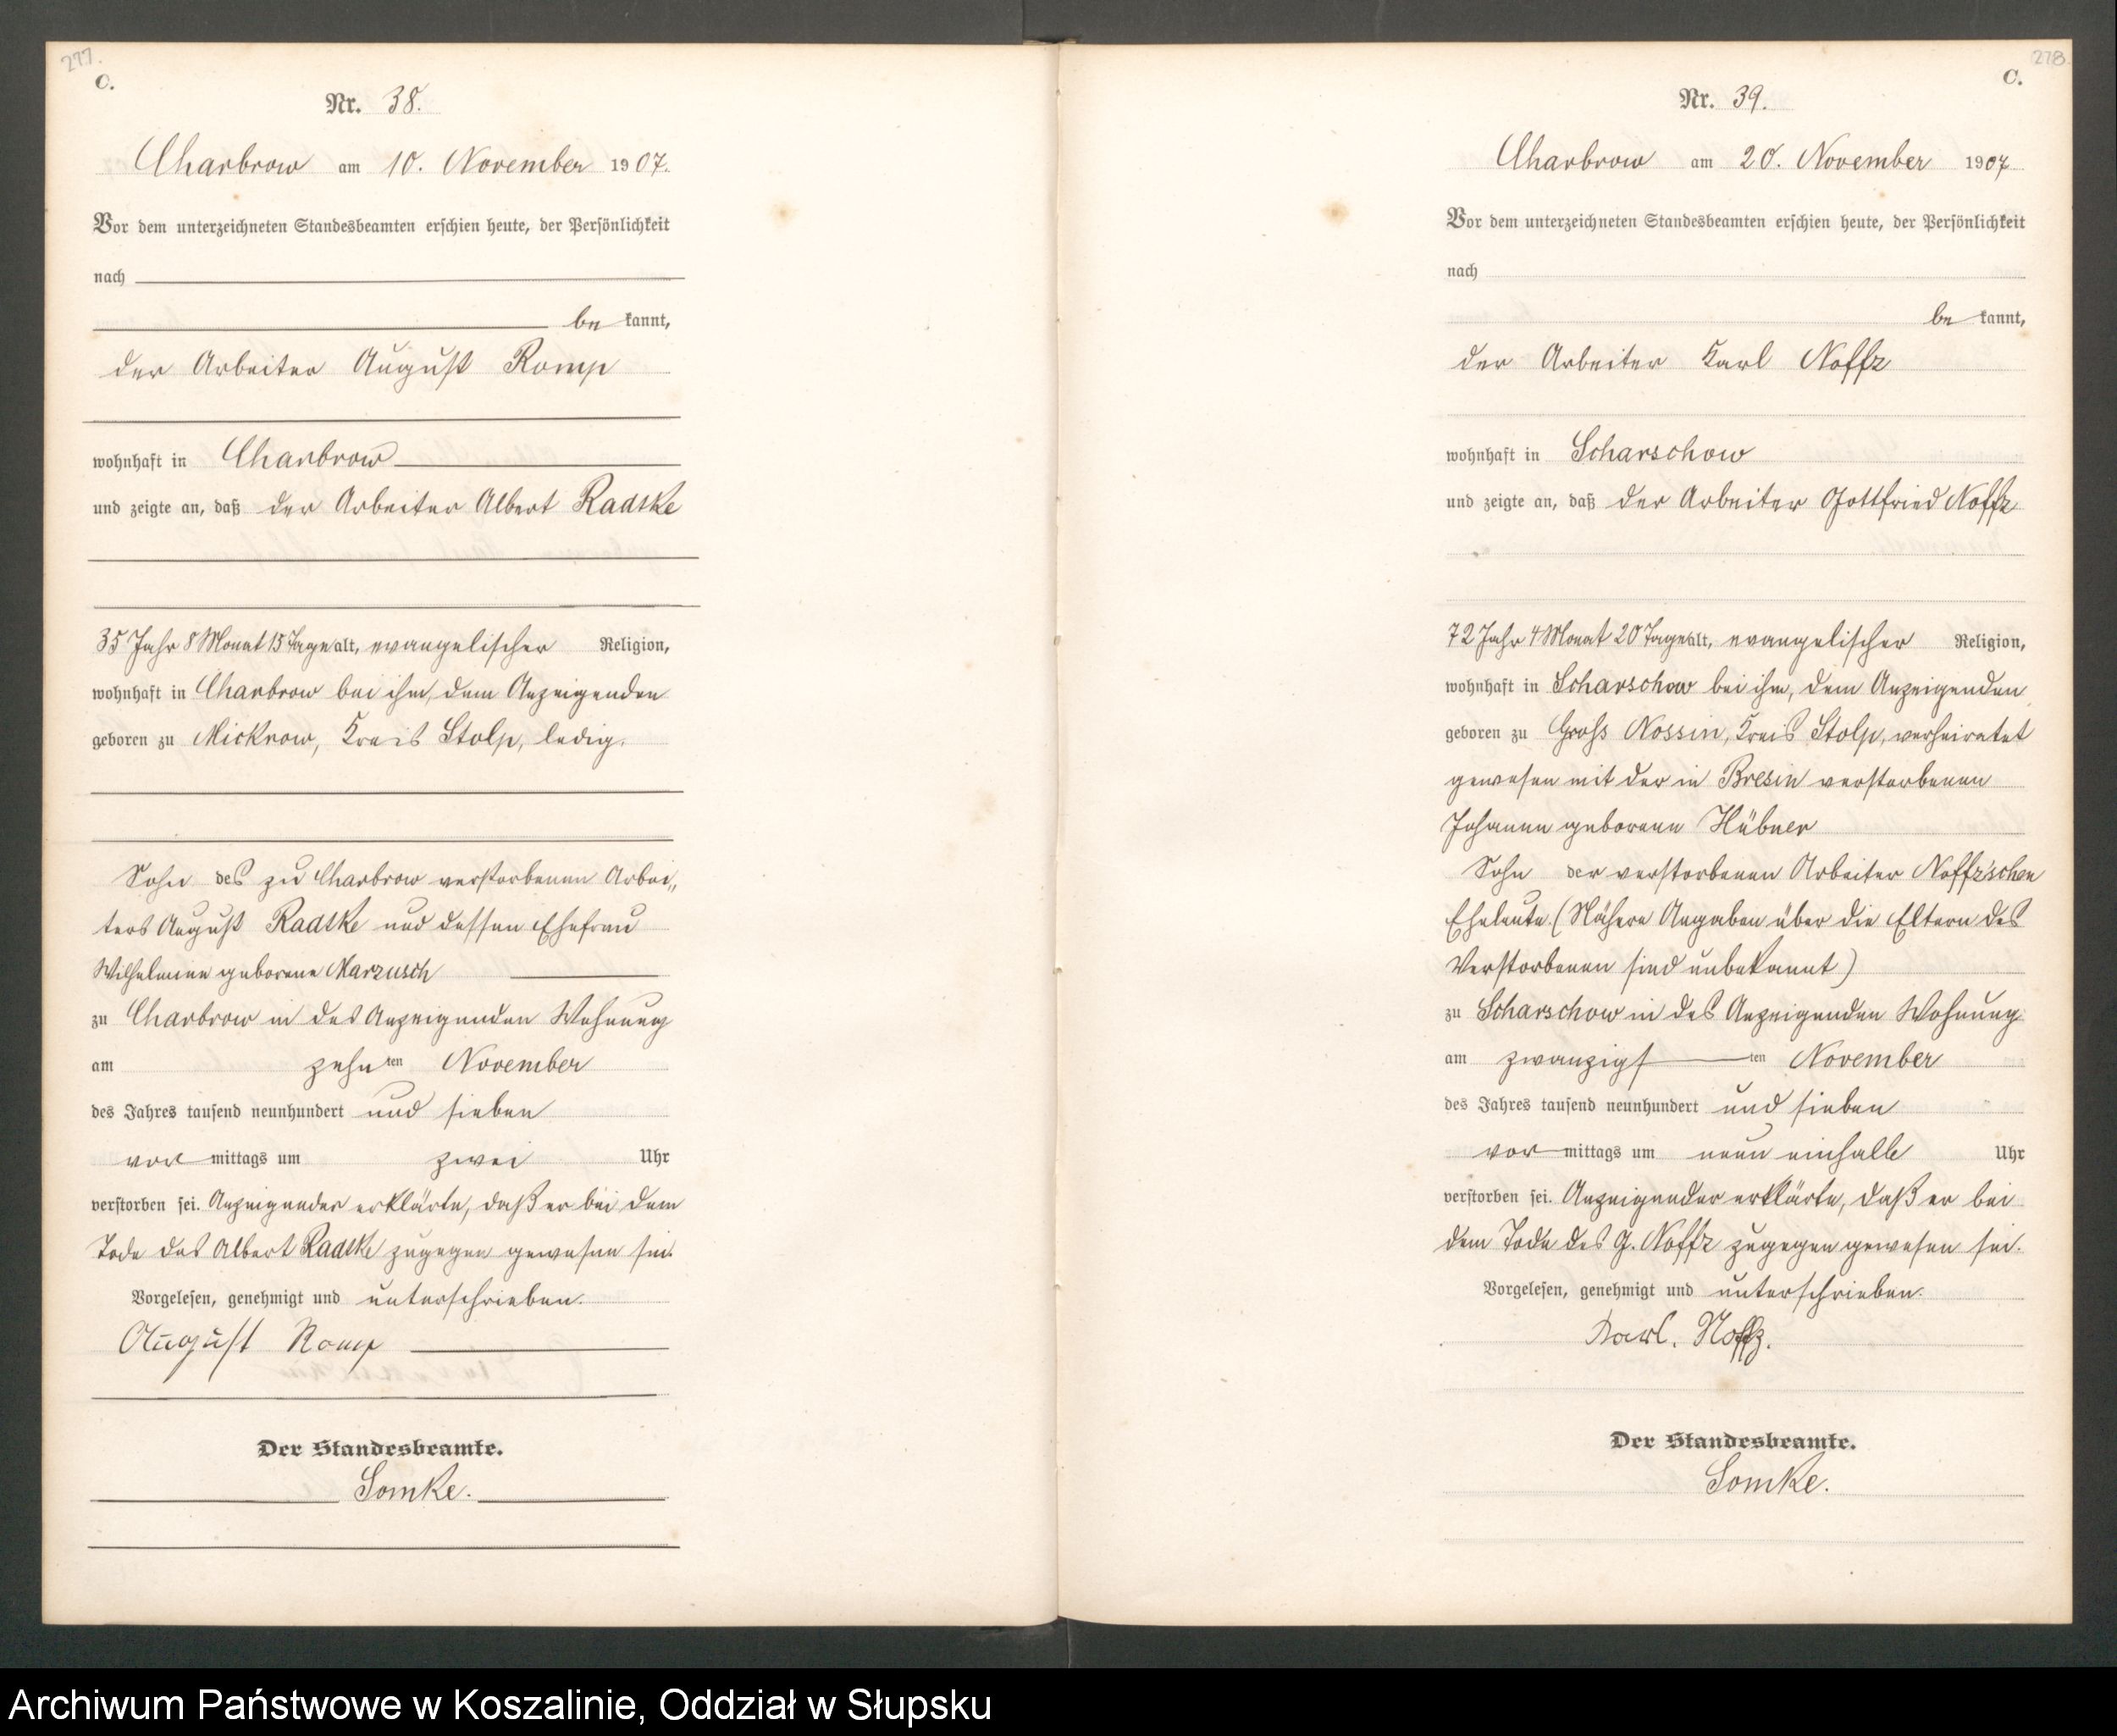 277.
C.
Nr. 38.
Charbrow am 10. November 1907.
Vor dem unterzeichneten Standesbeamten erschien heute, der Persönlichkeit
nach
be kannt,
der Arbeiter August Romp
wohnhaft in Charbrow
und zeigte an, daß der Arbeiter Albert Radtke
35 Jahr 8 Monat 15 Tage alt, evangelischer Religion,
wohnhaft in Charbrow bei ihm, dem Anzeigenden
geboren zu Mickrow, Kreis Stolp, ledig.
Sohn des zu Charbrow verstorbenen Arbei„
ters August Radtke und dessen Ehefrau
Wilhelmine geborene Marzusch
zu Charbrow in des Anzeigenden Wohnung
am zehn ten November
des Jahres tausend neunhundert und sieben
vor mittags um zwei Uhr
verstorben sei. Anzeigender erklärte, daß er bei dem
Tode des Albert Radtke zugegen gewesen sei.
Vorgelesen, genehmigt und unterschrieben.
August Romp
Der Standesbeamte.
Somke.
278
C.
Nr. 39.
Charbrow am 20. November 1907
Vor dem unterzeichneten Standesbeamten erschien heute, der Persönlichkeit
nach
be kannt,
der Arbeiter Karl Noffz
wohnhaft in Scharschow
und zeigte an, daß der Arbeiter Gottfried Noffz
72 Jahr 4 Monat 20 Tage alt, evangelischer Religion,
wohnhaft in Scharschow bei ihm, dem Anzeigenden
geboren zu Gross Nossin, Kreis Stolp, verheiratet
gewesen mit der in Bresin verstorbenen
Johanne geborene Hübner
Sohn der verstorbenen Arbeiter Noffz'schen
Eheleute. (Nähere Angaben über die Eltern des
Verstorbenen sind unbekannt)
zu Scharschow in des Anzeigenden Wohnung
am zwanzigs ten November
des Jahres tausend neunhundert und sieben
vor mittags um neun einhalb Uhr
verstorben sei. Anzeigender erklärte, daß er bei
dem Tode des G. Noffz zugegen gewesen sei.
Vorgelesen, genehmigt und unterschrieben.
Karl. Noffz.
Der Standesbeamte.
Somke.
Archiwum Państwowe w Koszalinie, Oddział w Słupsku